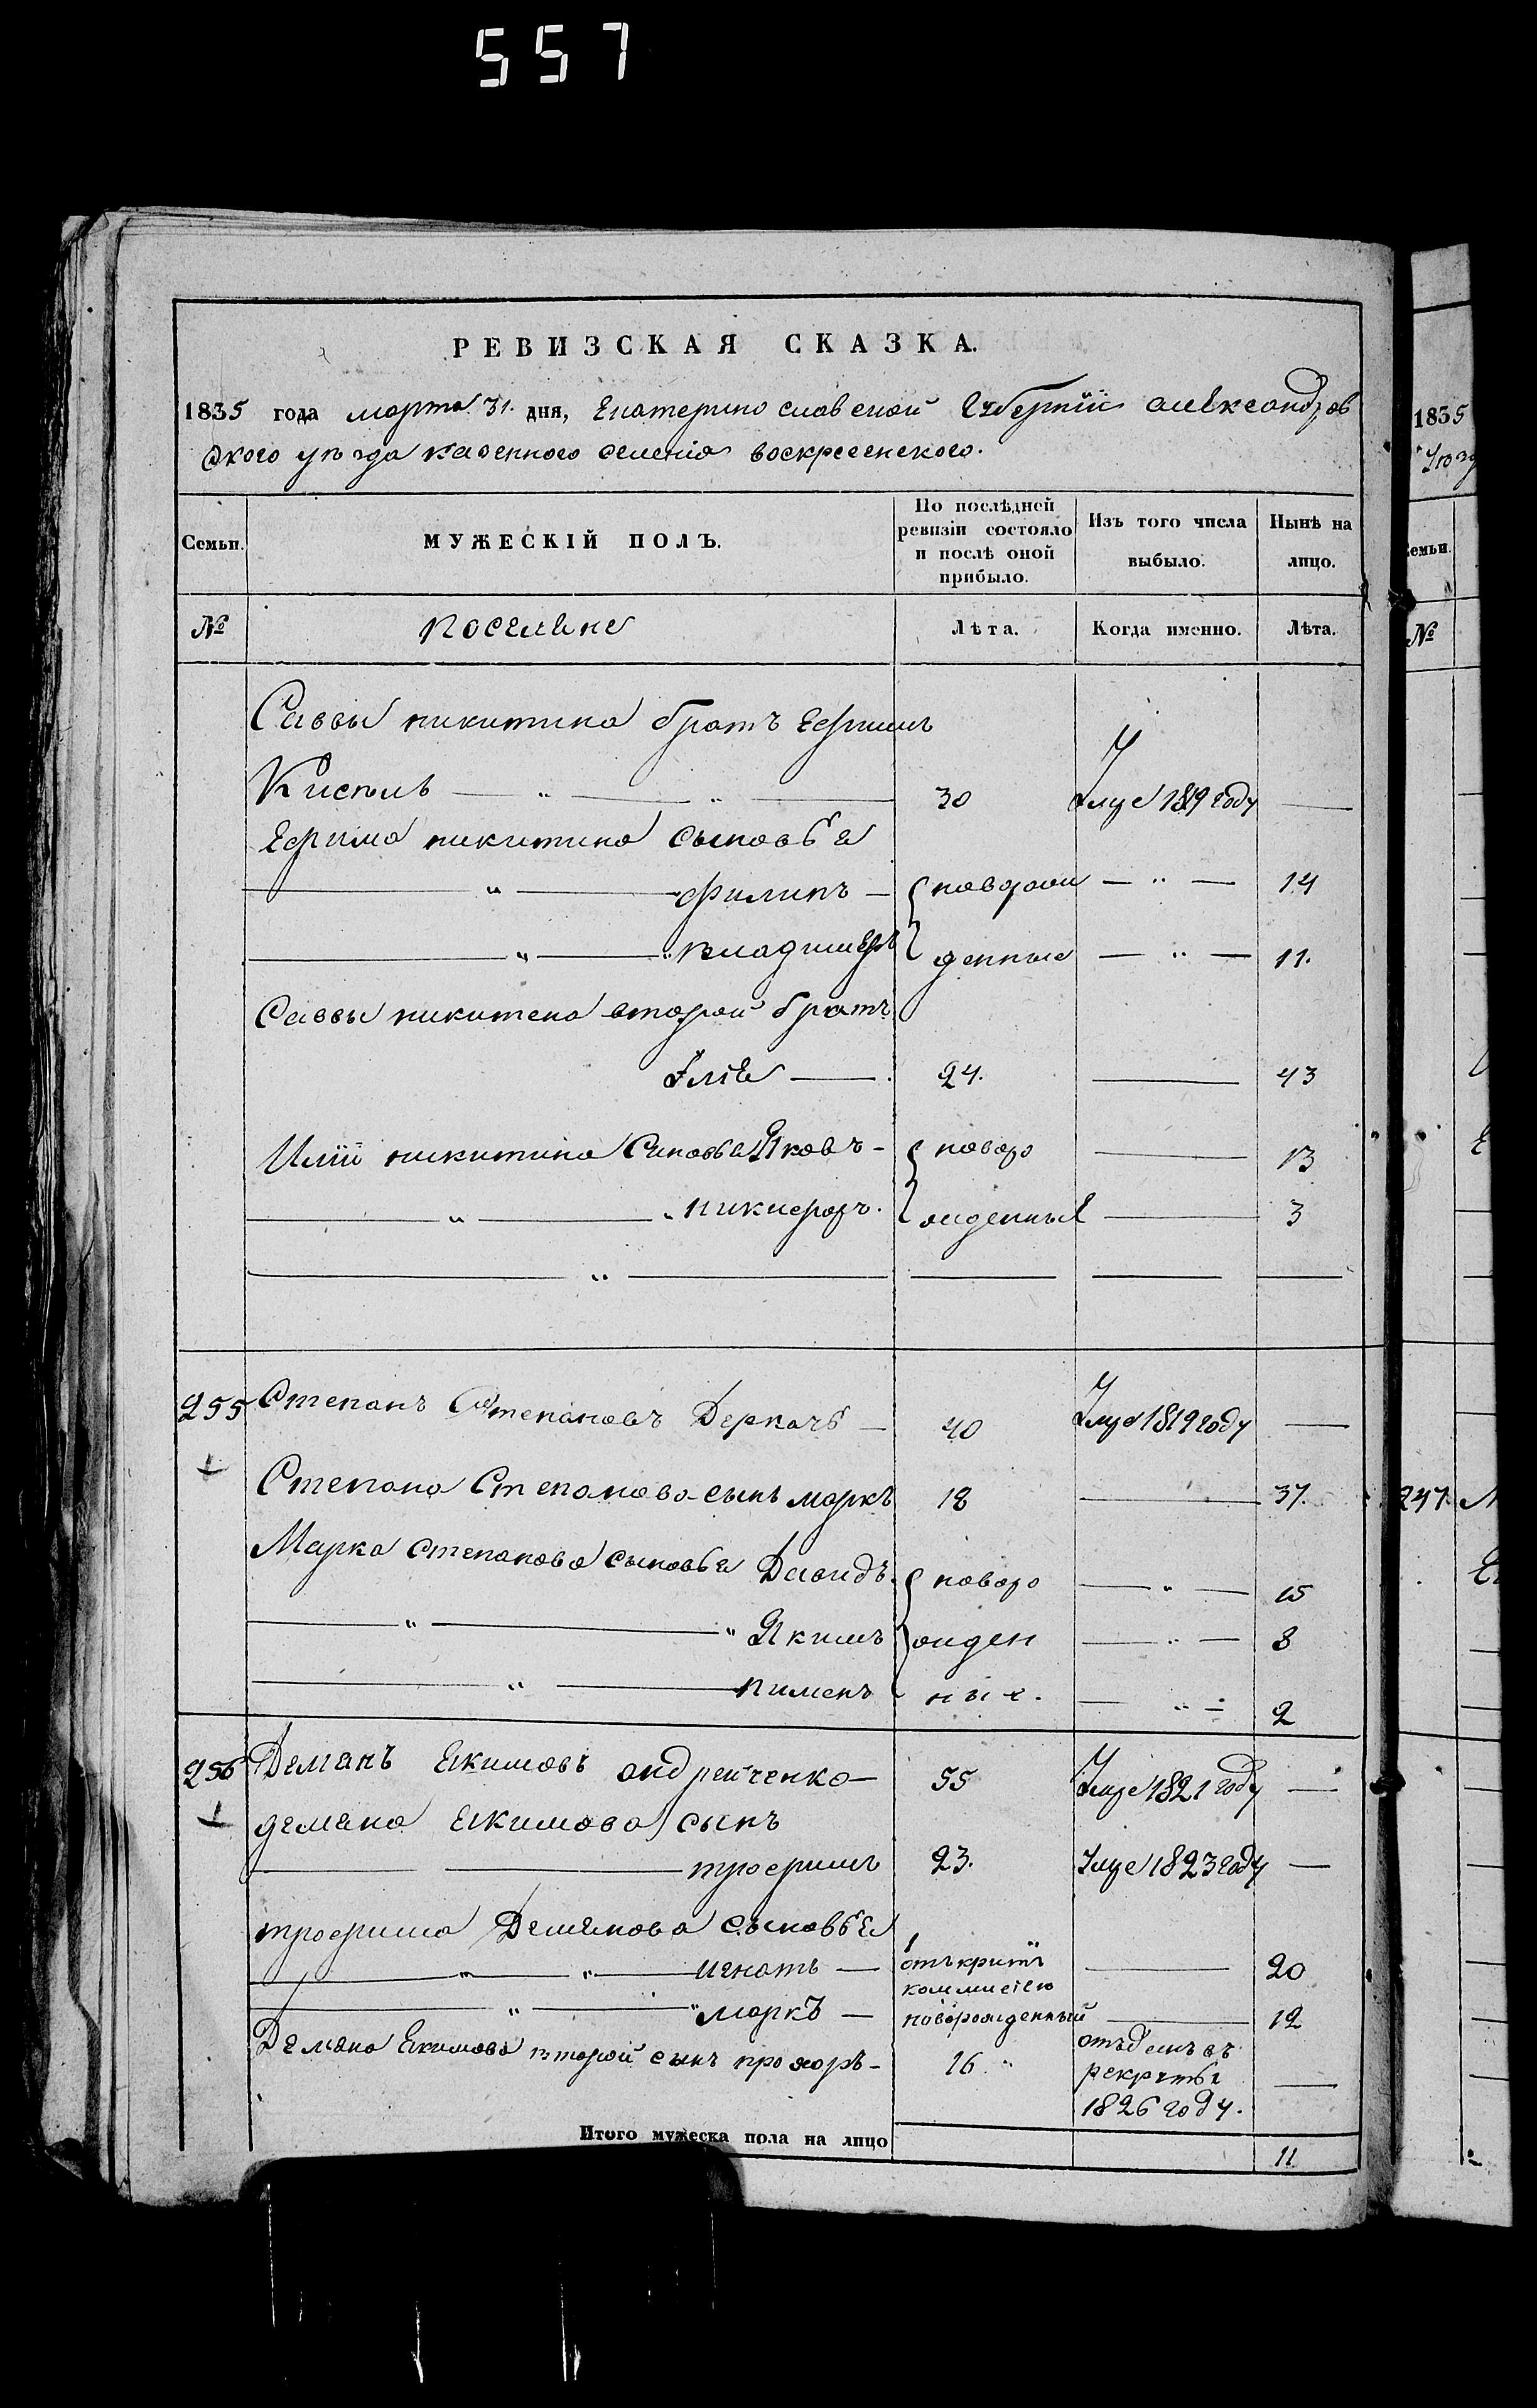 557
РЕВИЗСКАЯ СКАЗКА.
1835 года марта 31. дня, Екатеринославской Губернии александров
ского уезда казенного селения воскресенского.
Семьи. МУЖЕСКІЙ ПОЛЪ. По послѣдней ревизіи состояло и послѣ оной прибыло. Изъ того числа выбыло. Нынѣ на лицо.
№ поселяне Лѣта. Когда именно. Лѣта.
Саввы никитина братъ Ефимъ
30 Умре 1819 году —
Ефима никитина сыновья
Филипъ — новорож — " — 14
владимеръ денные — " — 11.
Саввы никитена второй братъ
Iлья — 24. — 43
Иліи никитина синовья Яковъ - новоро — 13
никифоръ. жденные — 3
255 Степанъ Степановъ Деркачъ — 40 Умре 1819 году —
Степана Степанова сынъ маркъ 18 — 37.
Марка степанова сыновья Давидъ. новоро — " — 15
" " Якимъ жден — " — 8
" пименъ ные. — " — 2
256 Демянъ Екимовъ андрейченко — 55 Умре 1821 году —
демяна Екимова сынъ
трофимъ 23. Умре 1823 году —
трофима Демянова сыновья
" " игнатъ — отъкритъ коммисіею — 20
" " маркъ — новорожденный — 12
Демяна Екимова второй сынъ прохоръ - 16. отъданъ въ рекруты 1826 году. —
Итого мужеска пола на лицо 11
1835
Семьи.
№
247.